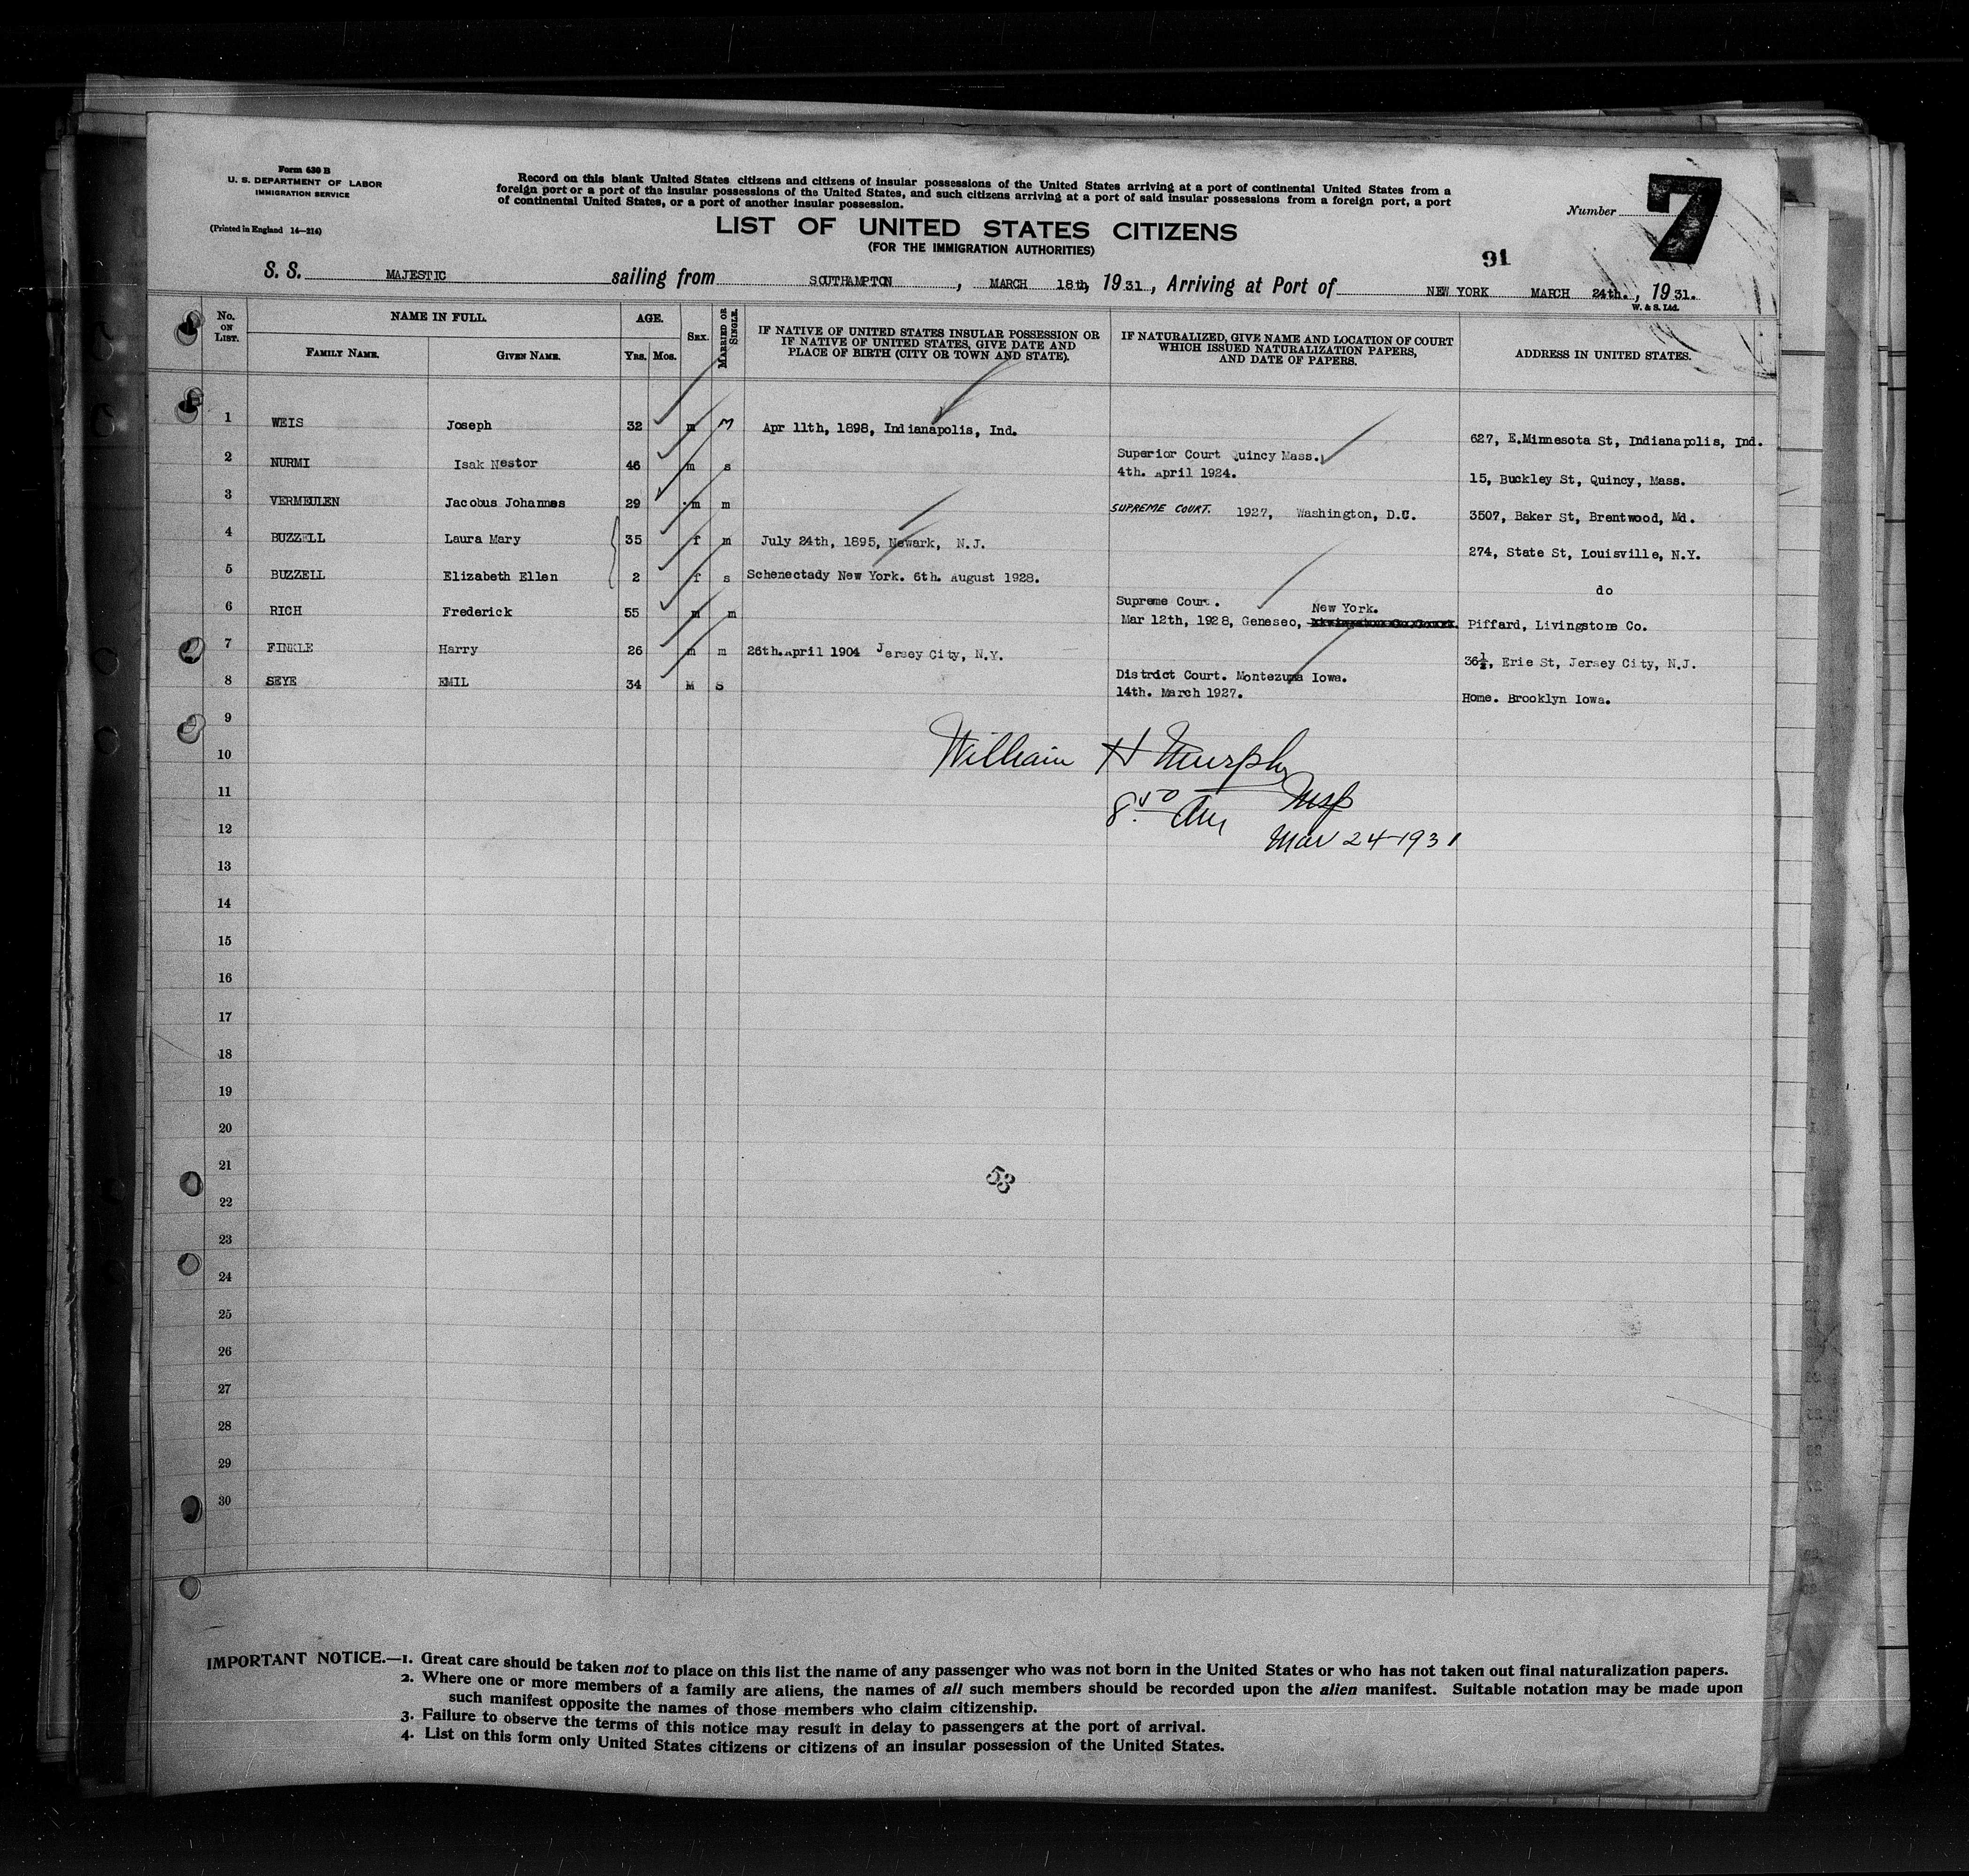 Form 630 B
U. S. DEPARTMENT OF LABOR
IMMIGRATION SERVICE
(Printed in England 14—214)
Record on this blank United States citizens and citizens of insular possessions of the United States arriving at a port of continental United States from a
foreign port or a port of the insular possessions of the United States, and such citizens arriving at a port of said insular possessions from a foreign port, a port
of continental United States, or a port of another insular possession.
Number 7
LIST OF UNITED STATES CITIZENS
(FOR THE IMMIGRATION AUTHORITIES)
91
S. S. MAJESTIC sailing from SOUTHAMPTON, MARCH 18th, 1931, Arriving at Port of NEW YORK MARCH 24th., 1931.
W. & S. Ltd.
No. ON LIST. NAME IN FULL. AGE. SEX. MARRIED OR SINGLE.
FAMILY NAME. GIVEN NAME. YRS. MOS.
IF NATIVE OF UNITED STATES INSULAR POSSESSION OR
IF NATIVE OF UNITED STATES, GIVE DATE AND
PLACE OF BIRTH (CITY OR TOWN AND STATE).
IF NATURALIZED, GIVE NAME AND LOCATION OF COURT
WHICH ISSUED NATURALIZATION PAPERS,
AND DATE OF PAPERS.
ADDRESS IN UNITED STATES.
1 WEIS Joseph 32 m M Apr 11th, 1898, Indianapolis, Ind. 627, E.Minnesota St, Indianapolis, Ind.
2 NURMI Isak Nestor 46 m s Superior Court Quincy Mass.
4th. April 1924. 15, Buckley St, Quincy, Mass.
3 VERMEULEN Jacobus Johannes 29 m m SUPREME COURT. 1927, Washington, D.C. 3507, Baker St, Brentwood, Md.
4 BUZZELL Laura Mary 35 f m July 24th, 1895, Newark, N.J. 274, State St, Louisville, N.Y.
5 BUZZELL Elizabeth Ellen 2 f s Schenectady New York. 6th. August 1928. do
6 RICH Frederick 55 m m Supreme Court. New York.
Mar 12th, 1928, Geneseo, Piffard, Livingstone Co.
7 FINKLE Harry 26 m m 26th.April 1904 Jersey City, N.Y. 36½, Erie St, Jersey City, N.J.
8 SEYE EMIL 34 M S District Court. Montezuma Iowa.
14th. March 1927. Home. Brooklyn Iowa.
9
10 William H Murphy
11 Insp
8.50 Am
12 Mar 24-1931
13
14
15
16
17
18
19
20
21
53
22
23
24
25
26
27
28
29
30
IMPORTANT NOTICE.—1. Great care should be taken not to place on this list the name of any passenger who was not born in the United States or who has not taken out final naturalization papers.
2. Where one or more members of a family are aliens, the names of all such members should be recorded upon the alien manifest. Suitable notation may be made upon
such manifest opposite the names of those members who claim citizenship.
3. Failure to observe the terms of this notice may result in delay to passengers at the port of arrival.
4. List on this form only United States citizens or citizens of an insular possession of the United States.